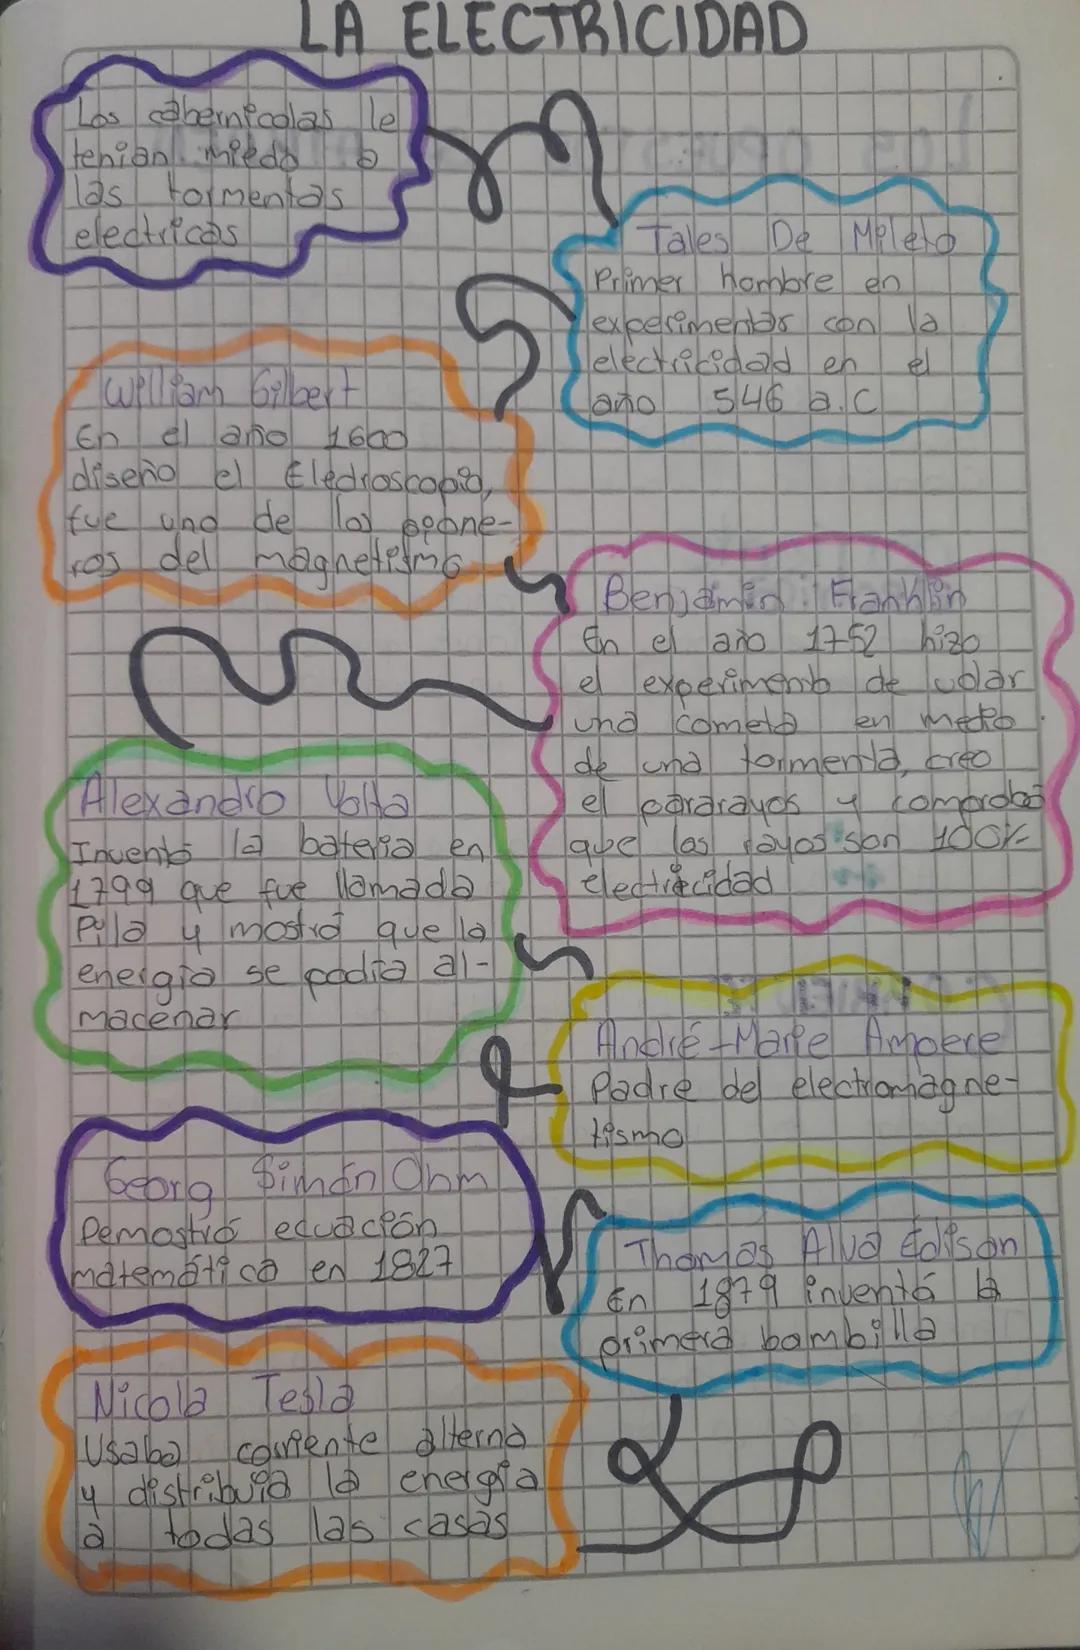 LA ELECTRICIDAD
Los cabernicolas le
tenian miedo a
las tormentas
electricas
Tales De Mileto
Primer hombre en
experimentar con la
electricidad en el
año 546 a.C
William Gilbert
En el año 1600
diseño el Electroscopio,
fue uno de los pione-
ros del magnetismo
Benjamin Franklin
En el año 1752 hizo
el experimento de volar
una cometa en medio
de una tormenta, creo
el pararayos y comprobó
que los rayos son 100%
electricidad
Alexandro Volta
Inventó la bateria en
1799 que fue llamada
Pila y mostró que la
energia se podia al-
macenar
André-Marie Ampere
Padre del electromagne-
tismo
Georg Simón Ohm
Demostró ecuación
matemática en 1827
Thomas Alva Edison
En 1879 inventó la
primera bombilla
Nicola Tesla
Usaba corriente alterna
y distribuia la energia
a todas las casas